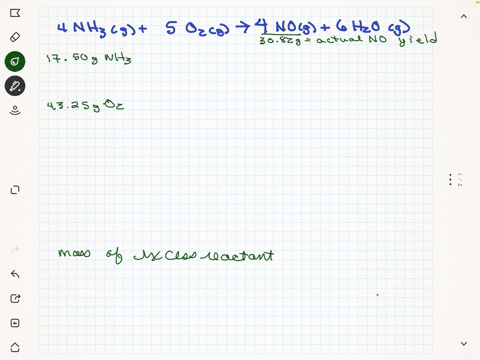 4 NH₃(g) + 5 O₂(g) → 4 NO(g) + 6 H₂O (g)
30.82g = actual NO yield
17.50g NH₃
43.25g O₂
mass of excess reactant